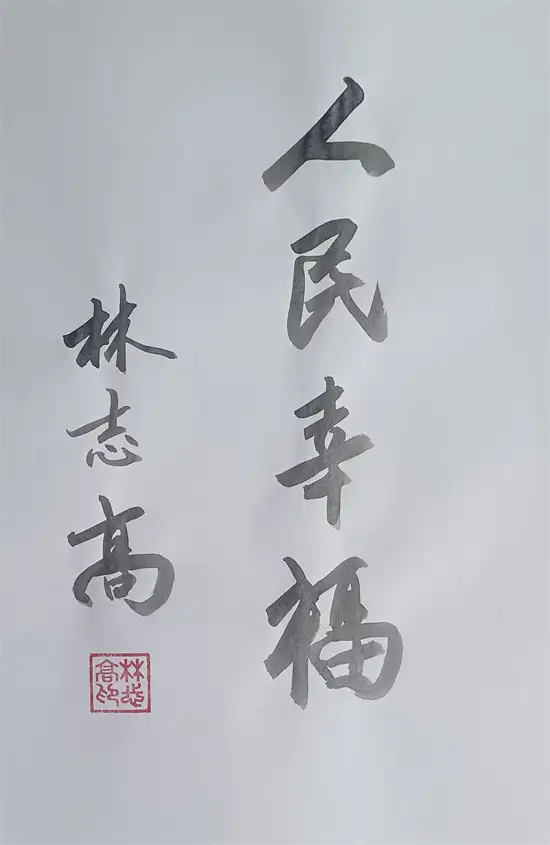 人民幸福
林志高
林志高印